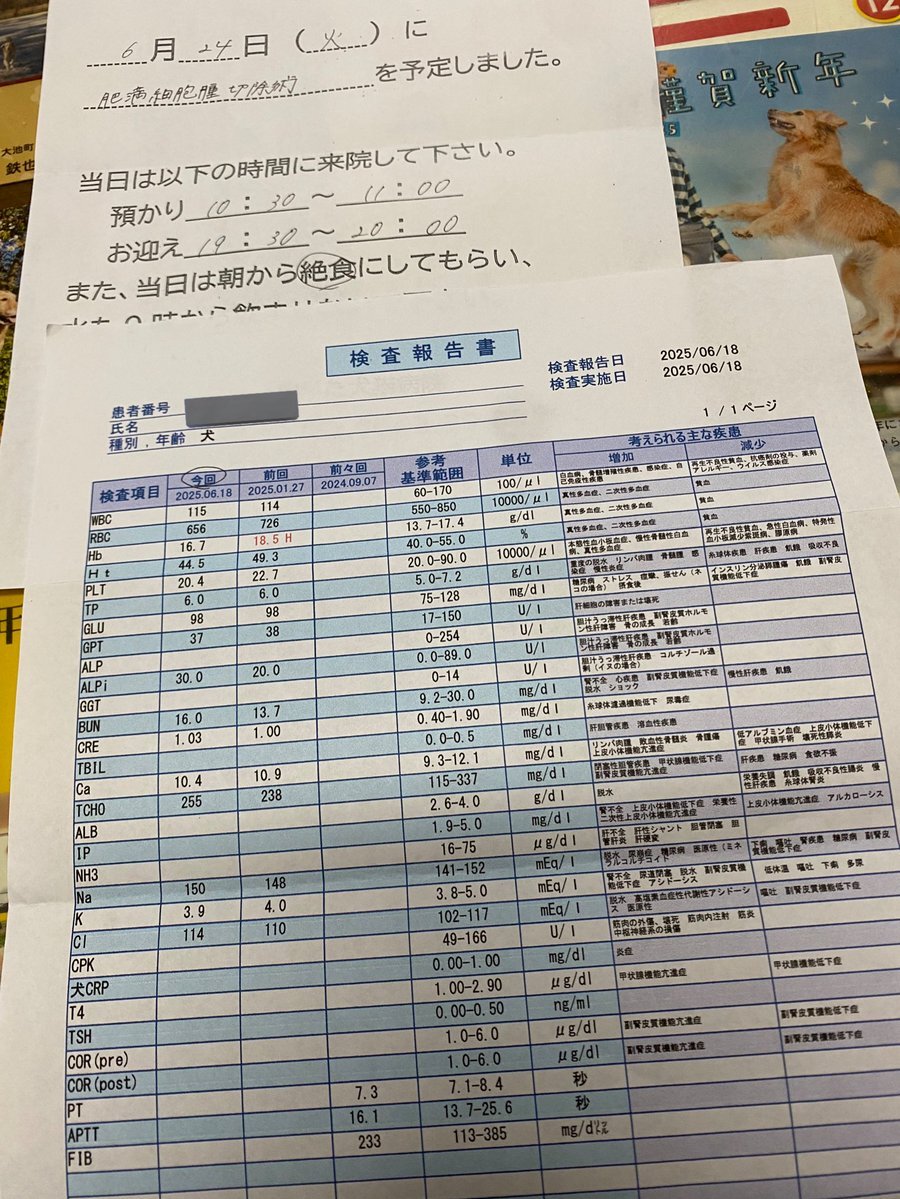 6月24日(火)に
肥満細胞腫切除術を予定しました。
当日は以下の時間に来院して下さい。
預かり 10:30～11:00
お迎え 19:30～20:00
また、当日は朝から絶食にしてもらい、
謹賀新年
12
大池町
鉄也
検査報告書
検査報告日 2025/06/18
検査実施日 2025/06/18
1 / 1 ページ
患者番号
氏名
種別，年齢 犬
検査項目 今回 2025.06.18 前回 2025.01.27 前々回 2024.09.07 参考基準範囲 単位 考えられる主な疾患 増加 減少
WBC 115 114 60-170 100/μl 白血病、骨髄増殖性疾患、感染症、自己免疫性疾患 再生不良性貧血、抗癌剤の投与、薬剤アレルギー、ウイルス感染症
RBC 656 726 550-850 10000/μl 真性多血症、二次性多血症 貧血
Hb 16.7 18.5 H 13.7-17.4 g/dl 真性多血症、二次性多血症 貧血
Ht 44.5 49.3 40.0-55.0 % 真性多血症、二次性多血症 貧血
PLT 20.4 22.7 20.0-90.0 10000/μl 本態性血小板血症、慢性骨髄性白血病、真性多血症 再生不良性貧血、急性白血病、特発性血小板減少紫斑病、膠原病
TP 6.0 6.0 5.0-7.2 g/dl 重度の脱水 リンパ肉腫 骨髄腫 感染症 慢性炎症 糸球体疾患 肝疾患 飢餓 吸収不良
GLU 98 98 75-128 mg/dl 糖尿病 ストレス 痙攣、振せん(ネコの場合) 摂食後 インスリン分泌膵腫瘍 飢餓 副腎皮質機能低下症
GPT 37 38 17-150 U/l 肝細胞の障害または壊死
ALP 0-254 U/l 胆汁うっ滞性肝疾患 副腎皮質ホルモン性肝障害 骨の成長 若齢
ALPi 30.0 20.0 0.0-89.0 U/l 胆汁うっ滞性肝疾患 副腎皮質ホルモン性肝障害 骨の成長 若齢
GGT 0-14 U/l 胆汁うっ滞性肝疾患 コルチゾール過剰(イヌの場合)
BUN 16.0 13.7 9.2-30.0 mg/dl 腎不全 心疾患 副腎皮質機能低下症 脱水 ショック 慢性肝疾患 飢餓
CRE 1.03 1.00 0.40-1.90 mg/dl 糸球体濾過機能低下 尿毒症
TBIL 0.0-0.5 mg/dl 肝胆管疾患 溶血性疾患
Ca 10.4 10.9 9.3-12.1 mg/dl リンパ肉腫 敗血性骨髄炎 骨腫瘍 上皮小体機能亢進症 低アルブミン血症 上皮小体機能低下症 甲状腺手術 壊死性膵炎
TCHO 255 238 115-337 mg/dl 閉塞性胆管疾患 甲状腺機能低下症 副腎皮質機能亢進症 肝疾患 糖尿病 食欲不振
ALB 2.6-4.0 g/dl 脱水 栄養失調 飢餓 吸収不良性腸炎 慢性肝疾患 糸球体腎炎
IP 1.9-5.0 mg/dl 腎不全 上皮小体機能低下症 栄養性二次性上皮小体機能亢進症 上皮小体機能亢進症 アルカローシス
NH3 16-75 μg/dl 肝不全 肝性シャント 胆管閉塞 胆管肝炎 肝硬変
Na 150 148 141-152 mEq/l 脱水 尿崩症 糖尿病 医原性(ミネラルコルチコイド 下痢 嘔吐 腎疾患 糖尿病 副腎皮質機能低下症
K 3.9 4.0 3.8-5.0 mEq/l 腎不全 尿道閉塞 脱水 副腎皮質機能低下症 アシドーシス 低体温 嘔吐 下痢 多尿
Cl 114 110 102-117 mEq/l 脱水 高塩素血症性代謝性アシドーシス 医原性 嘔吐 副腎皮質機能低下症
CPK 49-166 U/l 筋肉の外傷、壊死 筋肉内注射 筋炎 中枢神経系の損傷
犬CRP 0.00-1.00 mg/dl 炎症
T4 1.00-2.90 μg/dl 甲状腺機能亢進症 甲状腺機能低下症
TSH 0.00-0.50 ng/ml
COR(pre) 1.0-6.0 μg/dl 副腎皮質機能亢進症 副腎皮質機能低下症
COR(post) 1.0-6.0 μg/dl 副腎皮質機能亢進症 副腎皮質機能低下症
PT 7.3 7.1-8.4 秒
APTT 16.1 13.7-25.6 秒
FIB 233 113-385 mg/dリットル